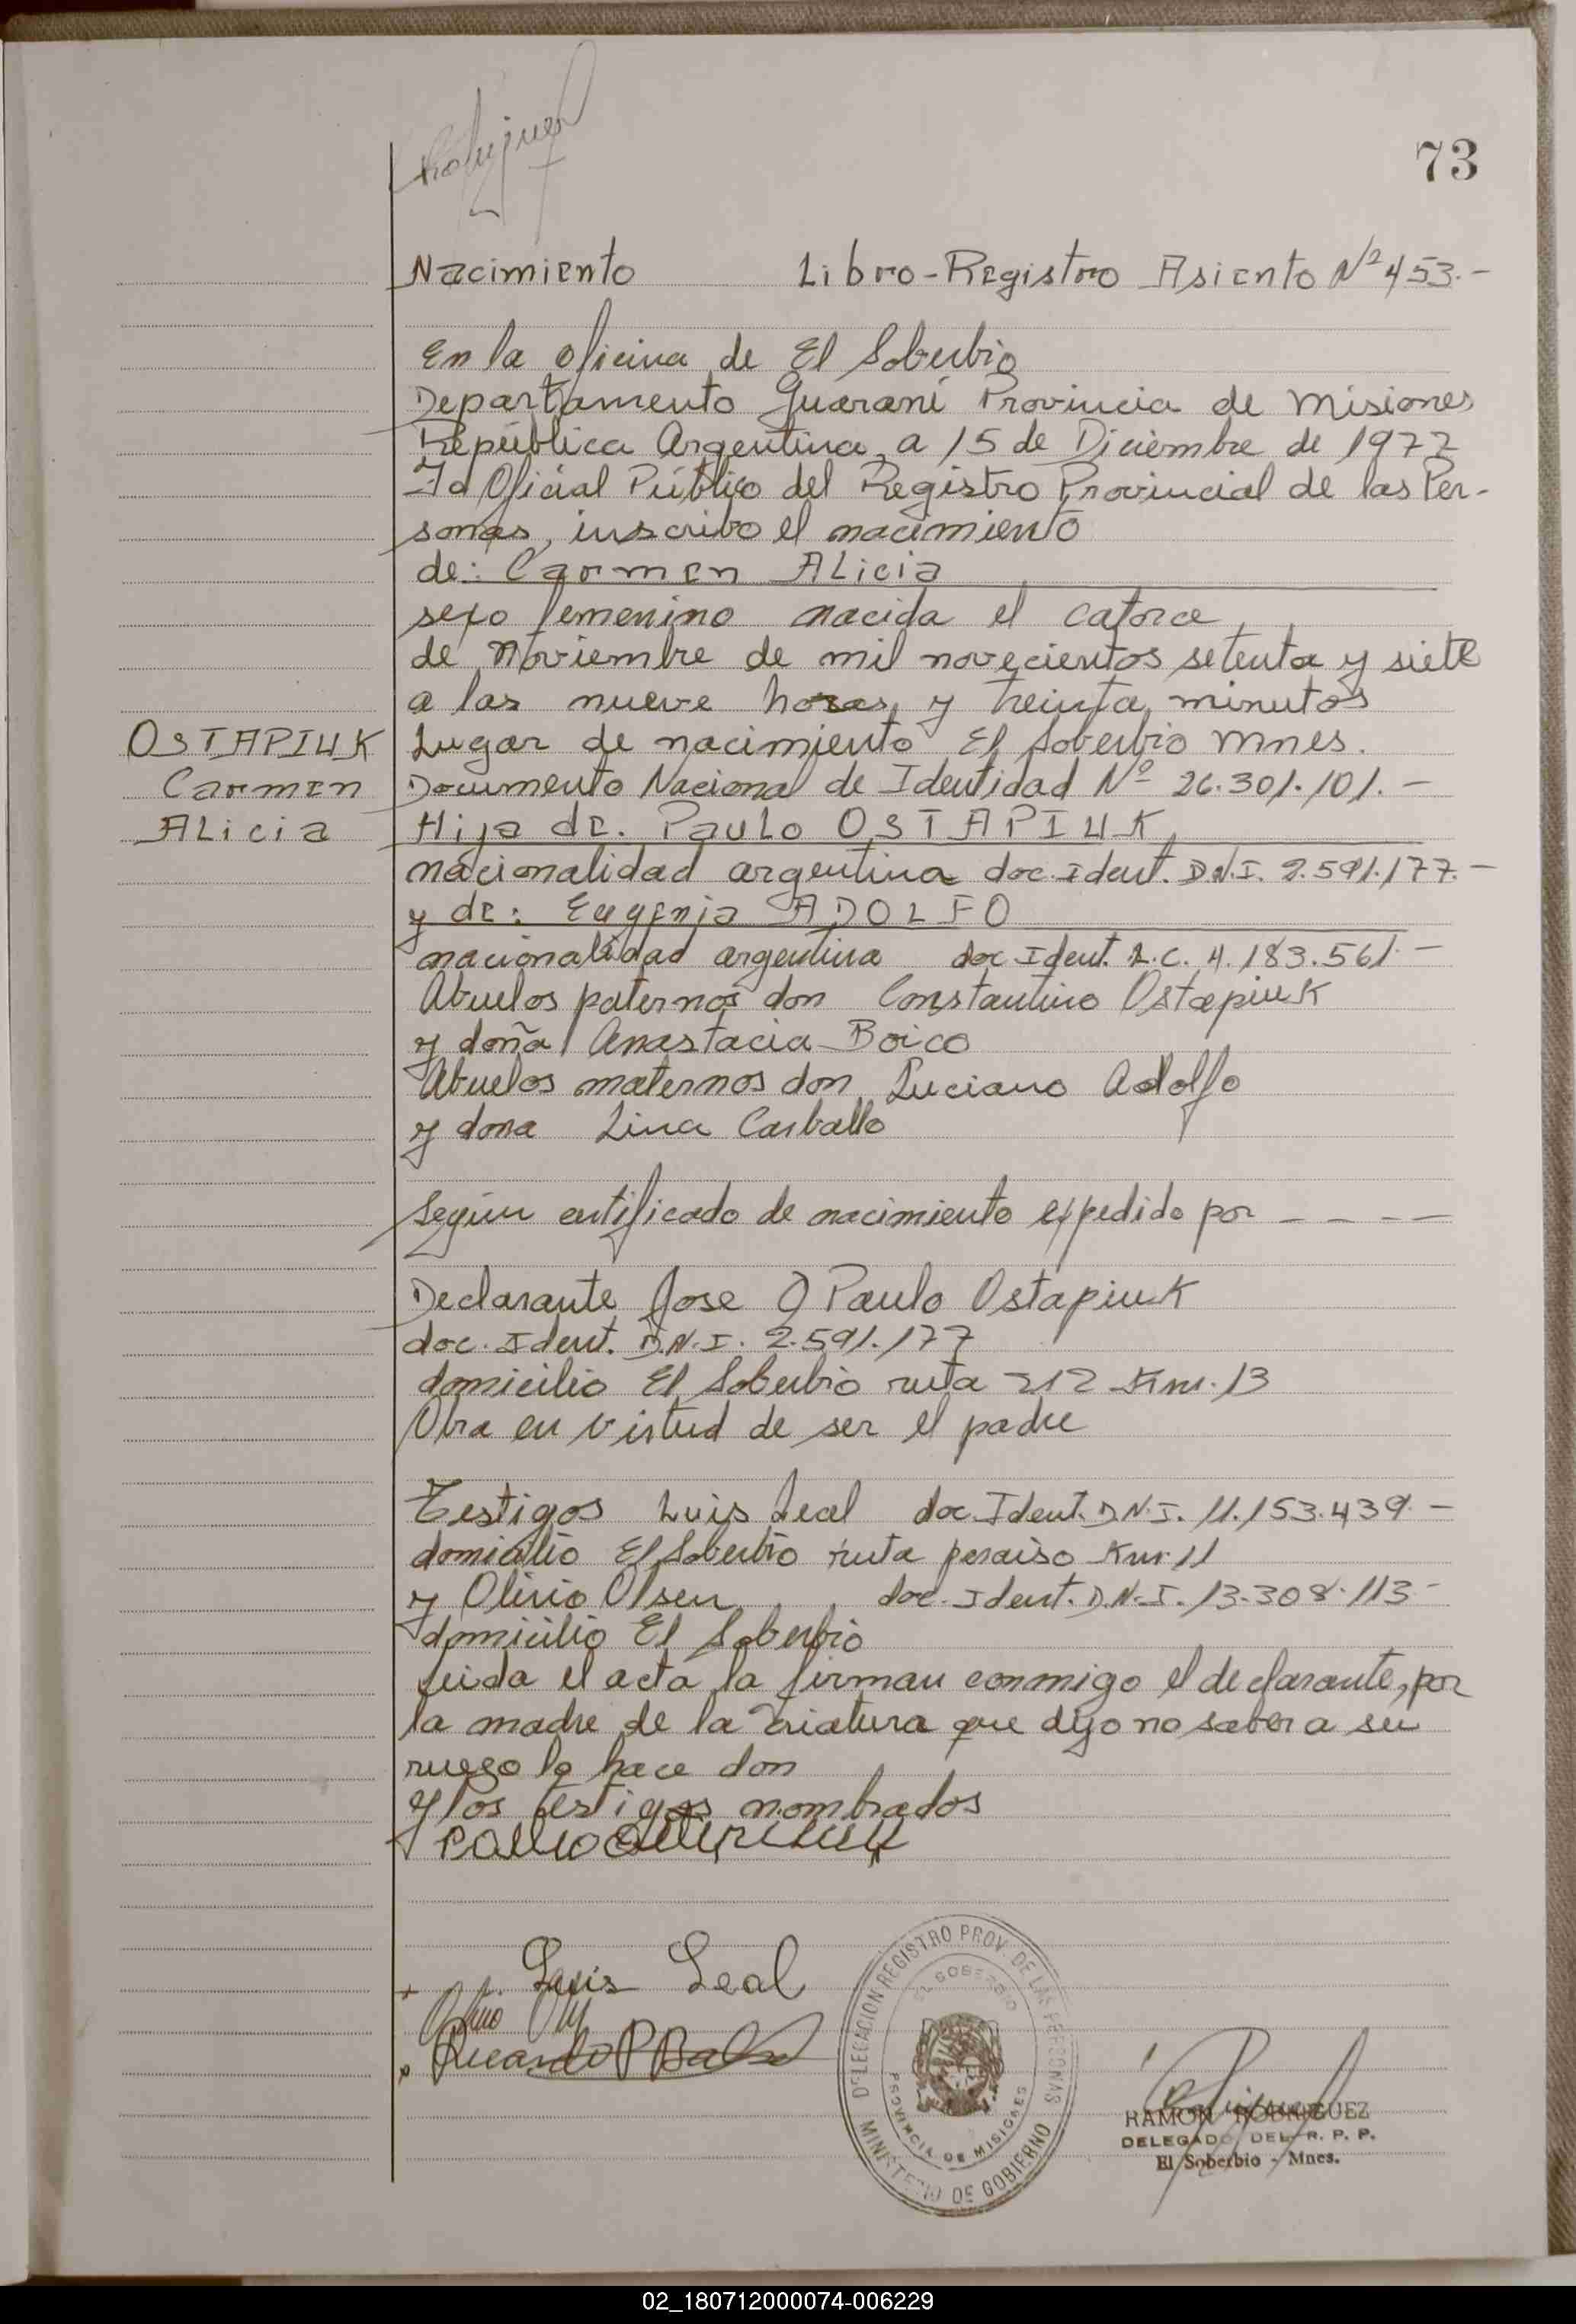 73
Nacimiento Libro-Registro Asiento Nº 453.-
En la oficina de El Soberbio
Departamento Guaraní Provincia de Misiones
República Argentina, a 15 de Diciembre de 1977
Yo Oficial Público del Registro Provincial de las Per-
sonas, inscribo el nacimiento
de: Carmen ALicia
sexo femenino nacida el catorce
de Noviembre de mil novecientos setenta y siete
a las nueve horas y treinta minutos
OSTAPIUK
Carmen
ALicia
Lugar de nacimiento El Soberbio Mnes.
Documento Nacional de Identidad Nº 26.301.101.-
Hija de. Paulo OSTAPIUK
nacionalidad argentina doc. Ident. D.N.I. 2.591.177.-
y de: Eugenia ADOLFO
nacionalidad argentina doc Ident. L.C. 4.183.561.-
Abuelos paternos don Constantino Ostapiuk
y doña Anastacia Boico
Abuelos maternos don Luciano Adolfo
y dona Lina Carballo
Según certificado de nacimiento expedido por - - - -
Declarante Jose Paulo Ostapiuk
doc. Ident. D.N.I. 2.591.177
domicilio El Soberbio ruta 212 Km. 13
Obra en virtud de ser el padre
Testigos Luis Leal doc. Ident. D.N.I. 11.153.439.-
domicilio El Soberbio ruta peraiso Km. 11
y Olivio Olsen doc. Ident. D.N.I. 13.308.113-
domicilio El Soberbio
Leida el acta la firman conmigo el declarante, por
la madre de la criatura que dijo no saber a su
ruego lo hace don
y los testigos nombrados
Luis Leal
Ricardo P
DELEGACION REGISTRO PROV. DE LAS PERSONAS
EL SOBERBIO
PROVINCIA DE MISIONES
MINISTERIO DE GOBIERNO
RAMON RODRIGUEZ
DELEGADO DEL R. P. P.
El Soberbio - Mnes.
02_180712000074-006229